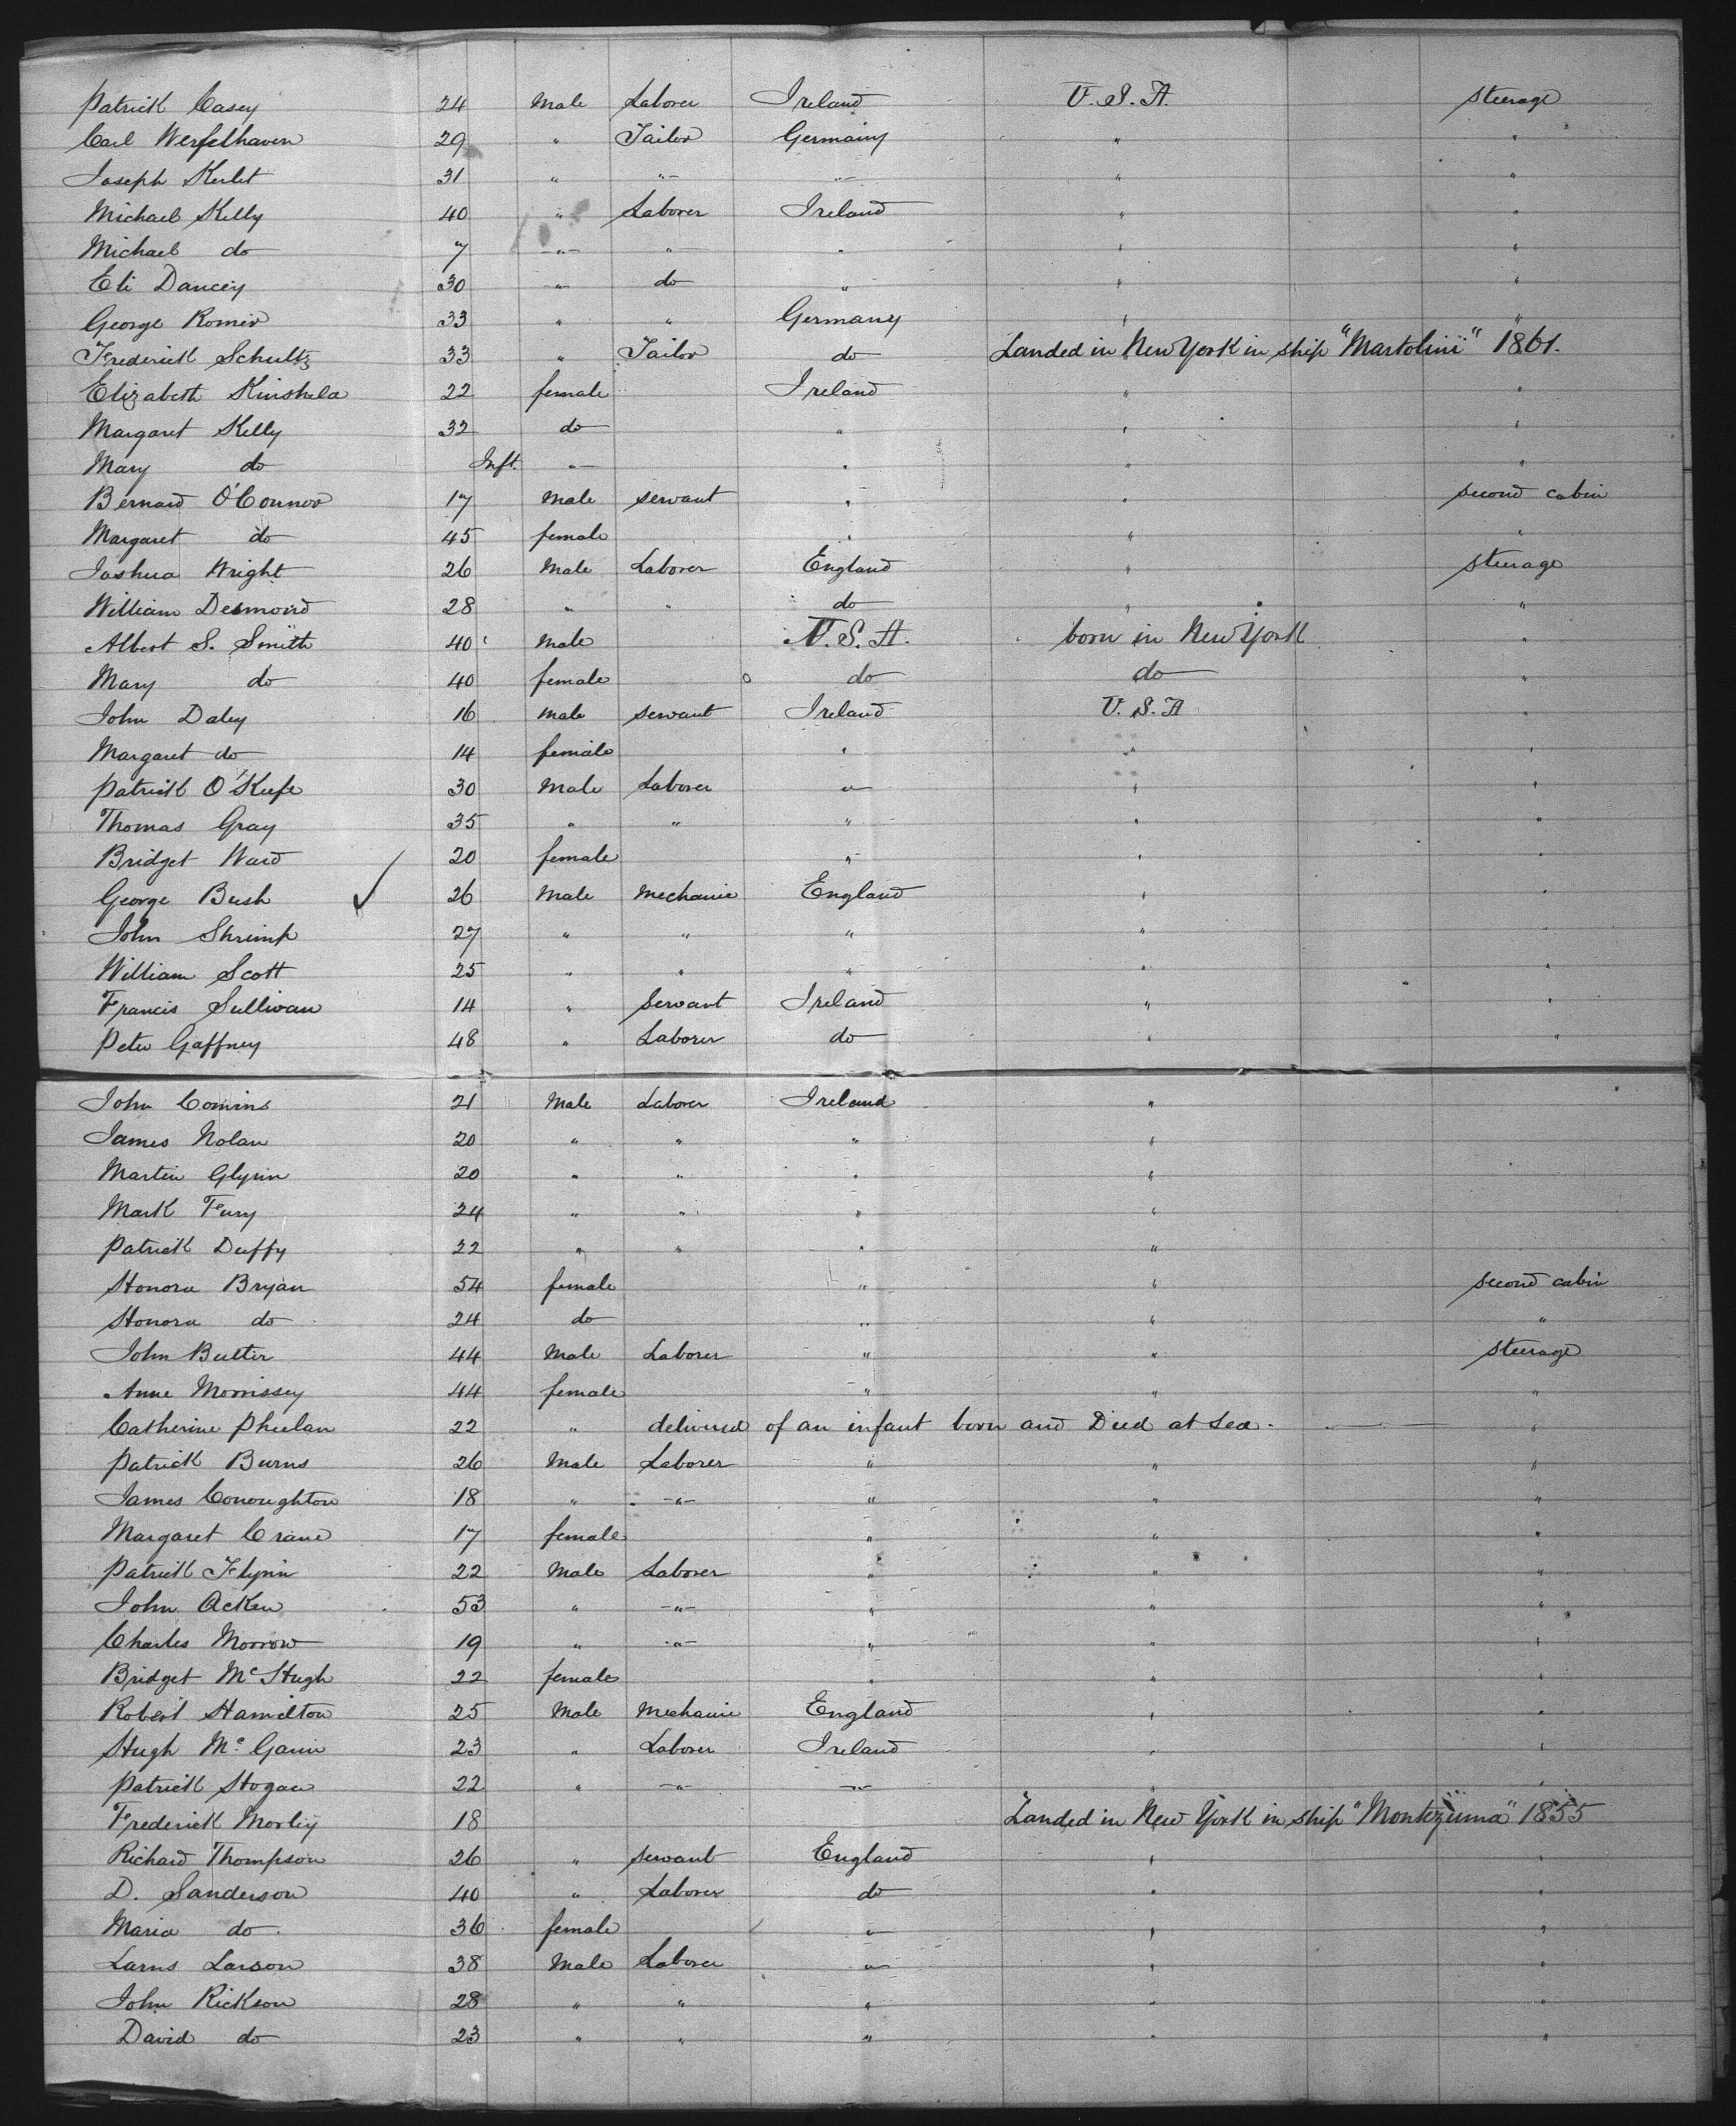 Patrick Casey 24 Male Laborer Ireland U.S.A. steerage
Carl Werfelhaven 29 " Tailor Germany " "
Joseph Kerlet 31 " " " " "
Michael Kelly 40 " Laborer Ireland " "
Michael do 7 " " " " "
Eli Dancey 30 " do " " "
George Romer 33 " " Germany " "
Frederick Schultz 33 " Tailor do Landed in New York in ship "Martolini" 1861.
Elizabeth Kinshela 22 female Ireland " "
Margaret Kelly 32 do " " "
Mary do Inft. " " " "
Bernard O'Connor 17 Male servant " " second cabin
Margaret do 45 female " " "
Joshua Wright 26 Male Laborer England " steerage
William Desmond 28 " " do " "
Albert S. Smith 40 Male U.S.A. born in New York "
Mary do 40 female do do "
John Daley 16 male servant Ireland U.S.A "
Margaret do 14 female " " "
Patrick O'Keefe 30 Male Laborer " " "
Thomas Gray 35 " " " " "
Bridget Ward 20 female " " "
George Bush ✓ 26 Male mechanic England " "
John Shrimp 27 " " " " "
William Scott 25 " " " " "
Francis Sullivan 14 " servant Ireland " "
Peter Gaffney 48 " Laborer do " "
John Comins 21 Male Laborer Ireland "
James Nolan 20 " " " "
Martin Glynn 20 " " " "
Mark Fury 24 " " " "
Patrick Duffy 22 " " " "
Honora Bryan 54 female " " second cabin
Honora do 24 do " " "
John Butler 44 Male Laborer " " steerage
Anne Morrissey 44 female " " "
Catherine Pheelan 22 " delivered of an infant born and Died at Sea. "
Patrick Burns 26 Male Laborer " " "
James Conoughton 18 " " " " "
Margaret Crane 17 female " " "
Patrick Flynn 22 Male Laborer " " "
John Acken 53 " " " " "
Charles Morrow 19 " " " " "
Bridget McHugh 22 female " " "
Robert Hamilton 25 Male Mechanic England " "
Hugh Mc Gann 23 " Laborer Ireland " "
Patrick Hogan 22 " " " " "
Frederick Morley 18 Landed in New York in ship "Montezuma" 1855
Richard Thompson 26 " servant England " "
D. Sanderson 40 " Laborer do " "
Maria do 36 female " " "
Larns Larson 38 Male Laborer " " "
John Rickson 28 " " " " "
David do 23 " " " " "